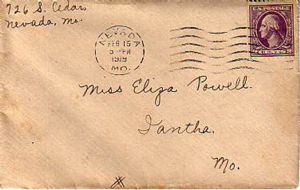 726 S. Cedar
Nevada, Mo.
NEVADA
FEB 15
5-PM
1919
MO.
Miss Eliza Powell.
Iantha.
Mo.